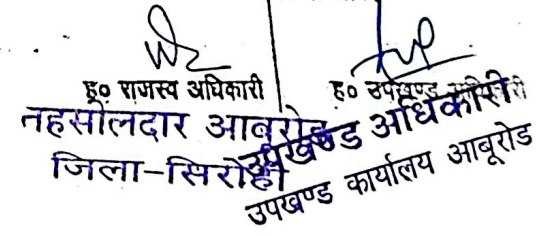 ह० राजस्व अधिकारी
ह० उपखण्ड अधिकारी
तहसीलदार आबूरोड
जिला-सिरोही
उपखण्ड अधिकारी
उपखण्ड कार्यालय आबूरोड